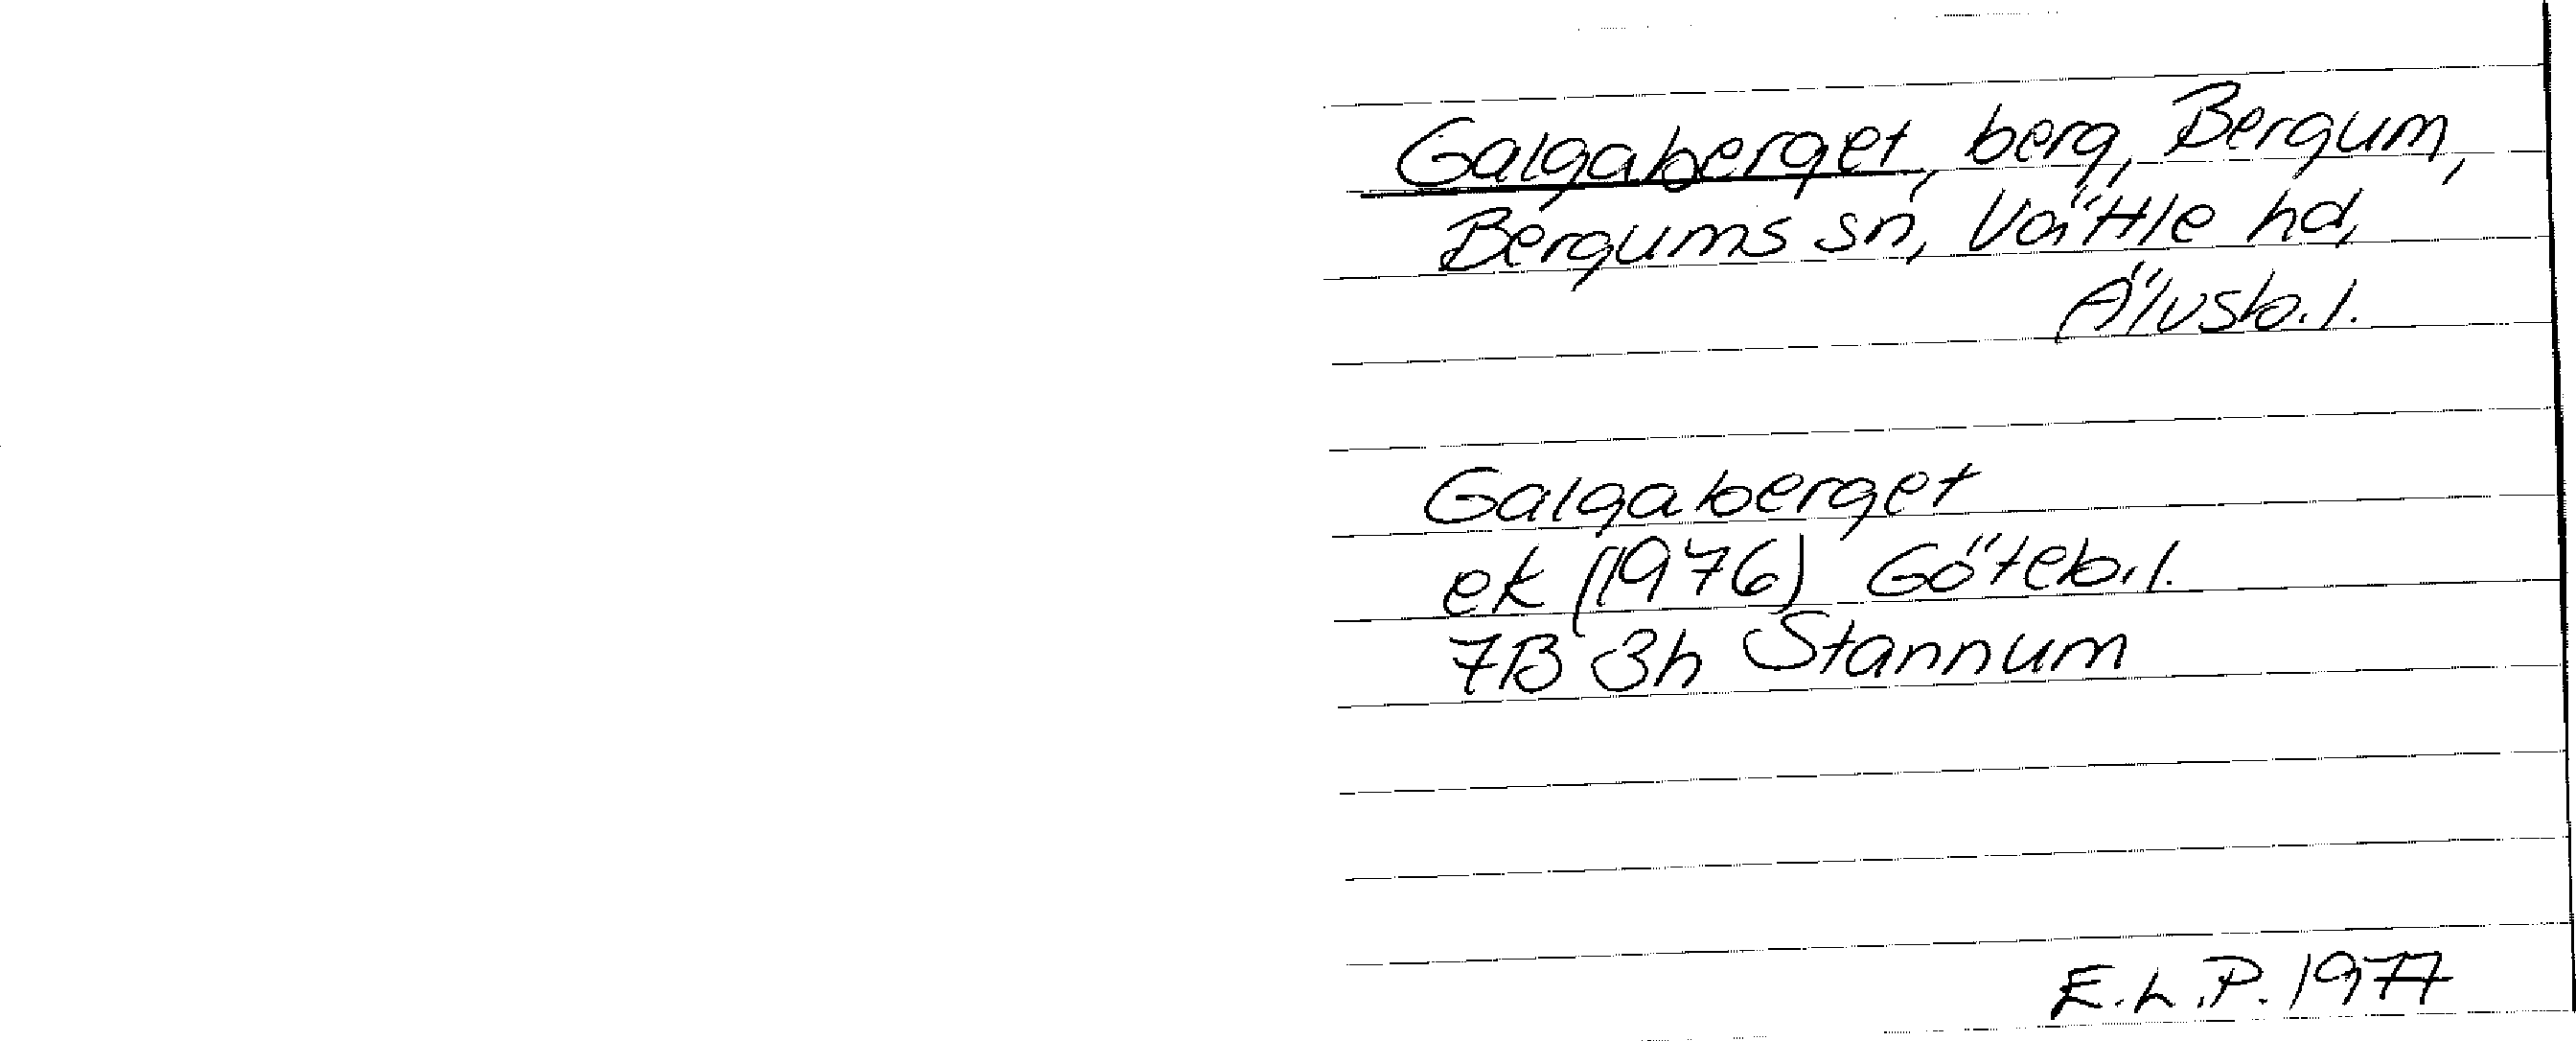 Galgaberget, berg, Bergum,
Bergums sn, Vättle hd,
Älvsb. l.
Galgaberget
ek (1976) Göteb. l.
7B 3h Stannum
E.L.P. 1977